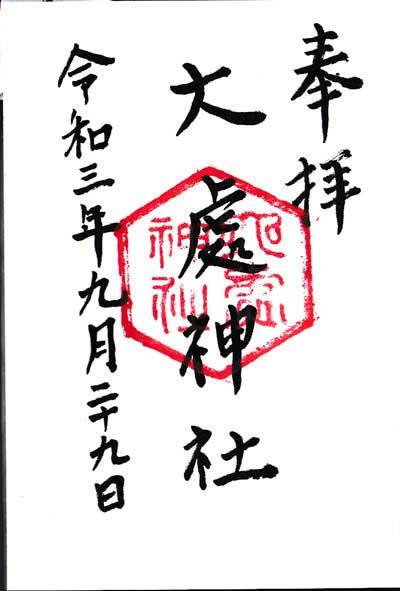 奉拝
大處神社
令和三年九月二十九日